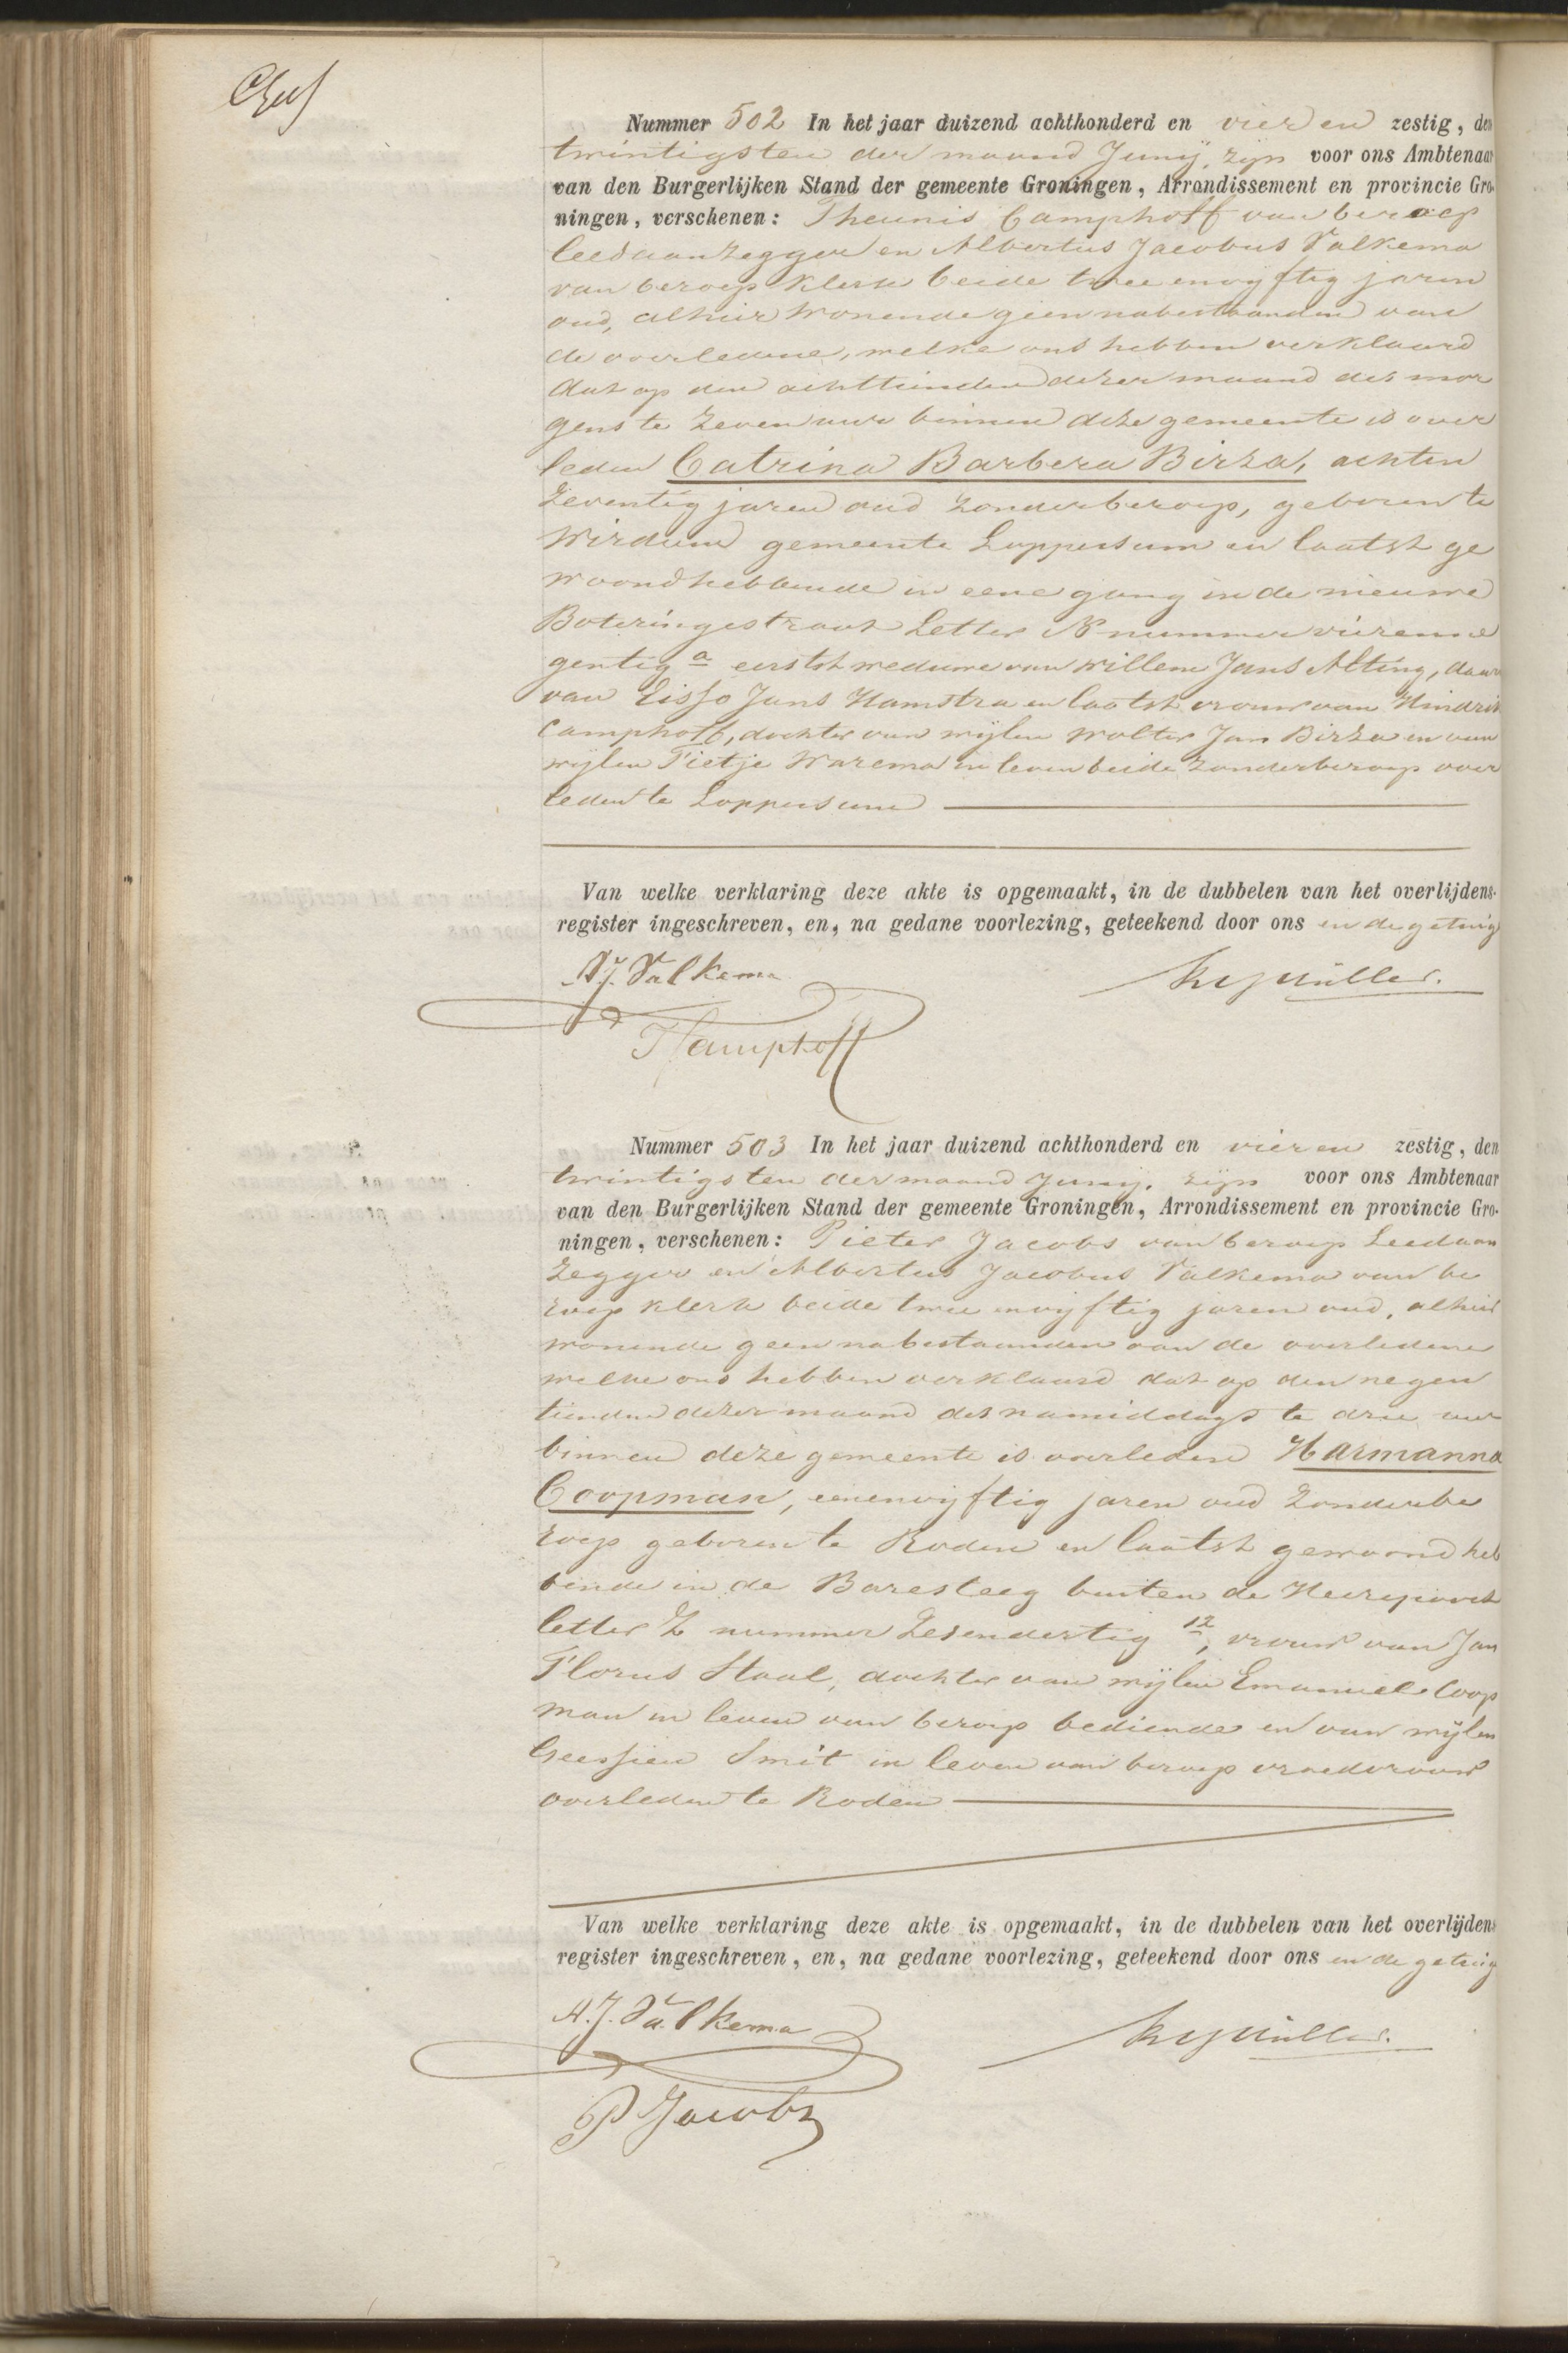 Nummer 502 In het jaar duizend achthonderd en vier en zestig, den
twintigsten der maand Junij, zijn voor ons Ambtenaar
van den Burgerlijken Stand der gemeente Groningen, Arrondissement en provincie Gro-
ningen, verschenen: Theunis Camphoff van beroep
leedaanzegger en Albertus Jacobus Valkema
van beroep klerk beide twee envijftig jaren
oud, alhier wonende geen nabestaanden van
de overledene, welke ons hebben verklaard
dat op den achttienden dezer maand des mor
gens te zeven uur binnen deze gemeente is over
leden Catrina Barbera Birza, achten
zeventig jaren oud zonder beroep, geboren te
Wirdum gemeente Loppersum en laatst ge
woond hebbende in eene gang in de nieuwe
Boteringestraat Letter N nummer vierenne
gentig a eerst weduwe van Willem Jans Alting, daarna
van Eisso Jans Hamstra en laatst vrouw van Hindrik
Camphoff, dochter van wijlen Wolter Jan Birza en van
wijlen Tietje Warema in leven beide zonder beroep over
leden te Loppersum
Van welke verklaring deze akte is opgemaakt, in de dubbelen van het overlijdens-
register ingeschreven, en, na gedane voorlezing, geteekend door ons en de getuig
A.J. Valkema Müller.
T Camphoff
Nummer 503 In het jaar duizend achthonderd en vier en zestig, den
twintigsten der maand Junij, zijn voor ons Ambtenaar
van den Burgerlijken Stand der gemeente Groningen, Arrondissement en provincie Gro-
ningen, verschenen: Pieter Jacobs van beroep Leedaan
zegger en Albertus Jacobus Valkema van be
roep klerk beide twee envijftig jaren oud, alhier
wonende geen nabestaanden van de overledene
welke ons hebben verklaard dat op den negen
tienden dezer maand des namiddags te drie uur
binnen deze gemeente is overleden Harmanna
Coopman, eenenvijftig jaren oud zonder be
roep geboren te Roden en laatst gewoond heb
bende in de Baresteeg buiten de Heerepoort
letter Z nummer zesendertig 12, vrouw van Jan
Florus Staal, dochter van wijlen Emanuel Coop
man in leven van beroep bediende en van wijlen
Geessien Smit in leven van beroep vroedvrouw
overleden te Roden
Van welke verklaring deze akte is opgemaakt, in de dubbelen van het overlijdens
register ingeschreven, en, na gedane voorlezing, geteekend door ons en de getuig
A.J. Valkema Müller.
P Jacobs